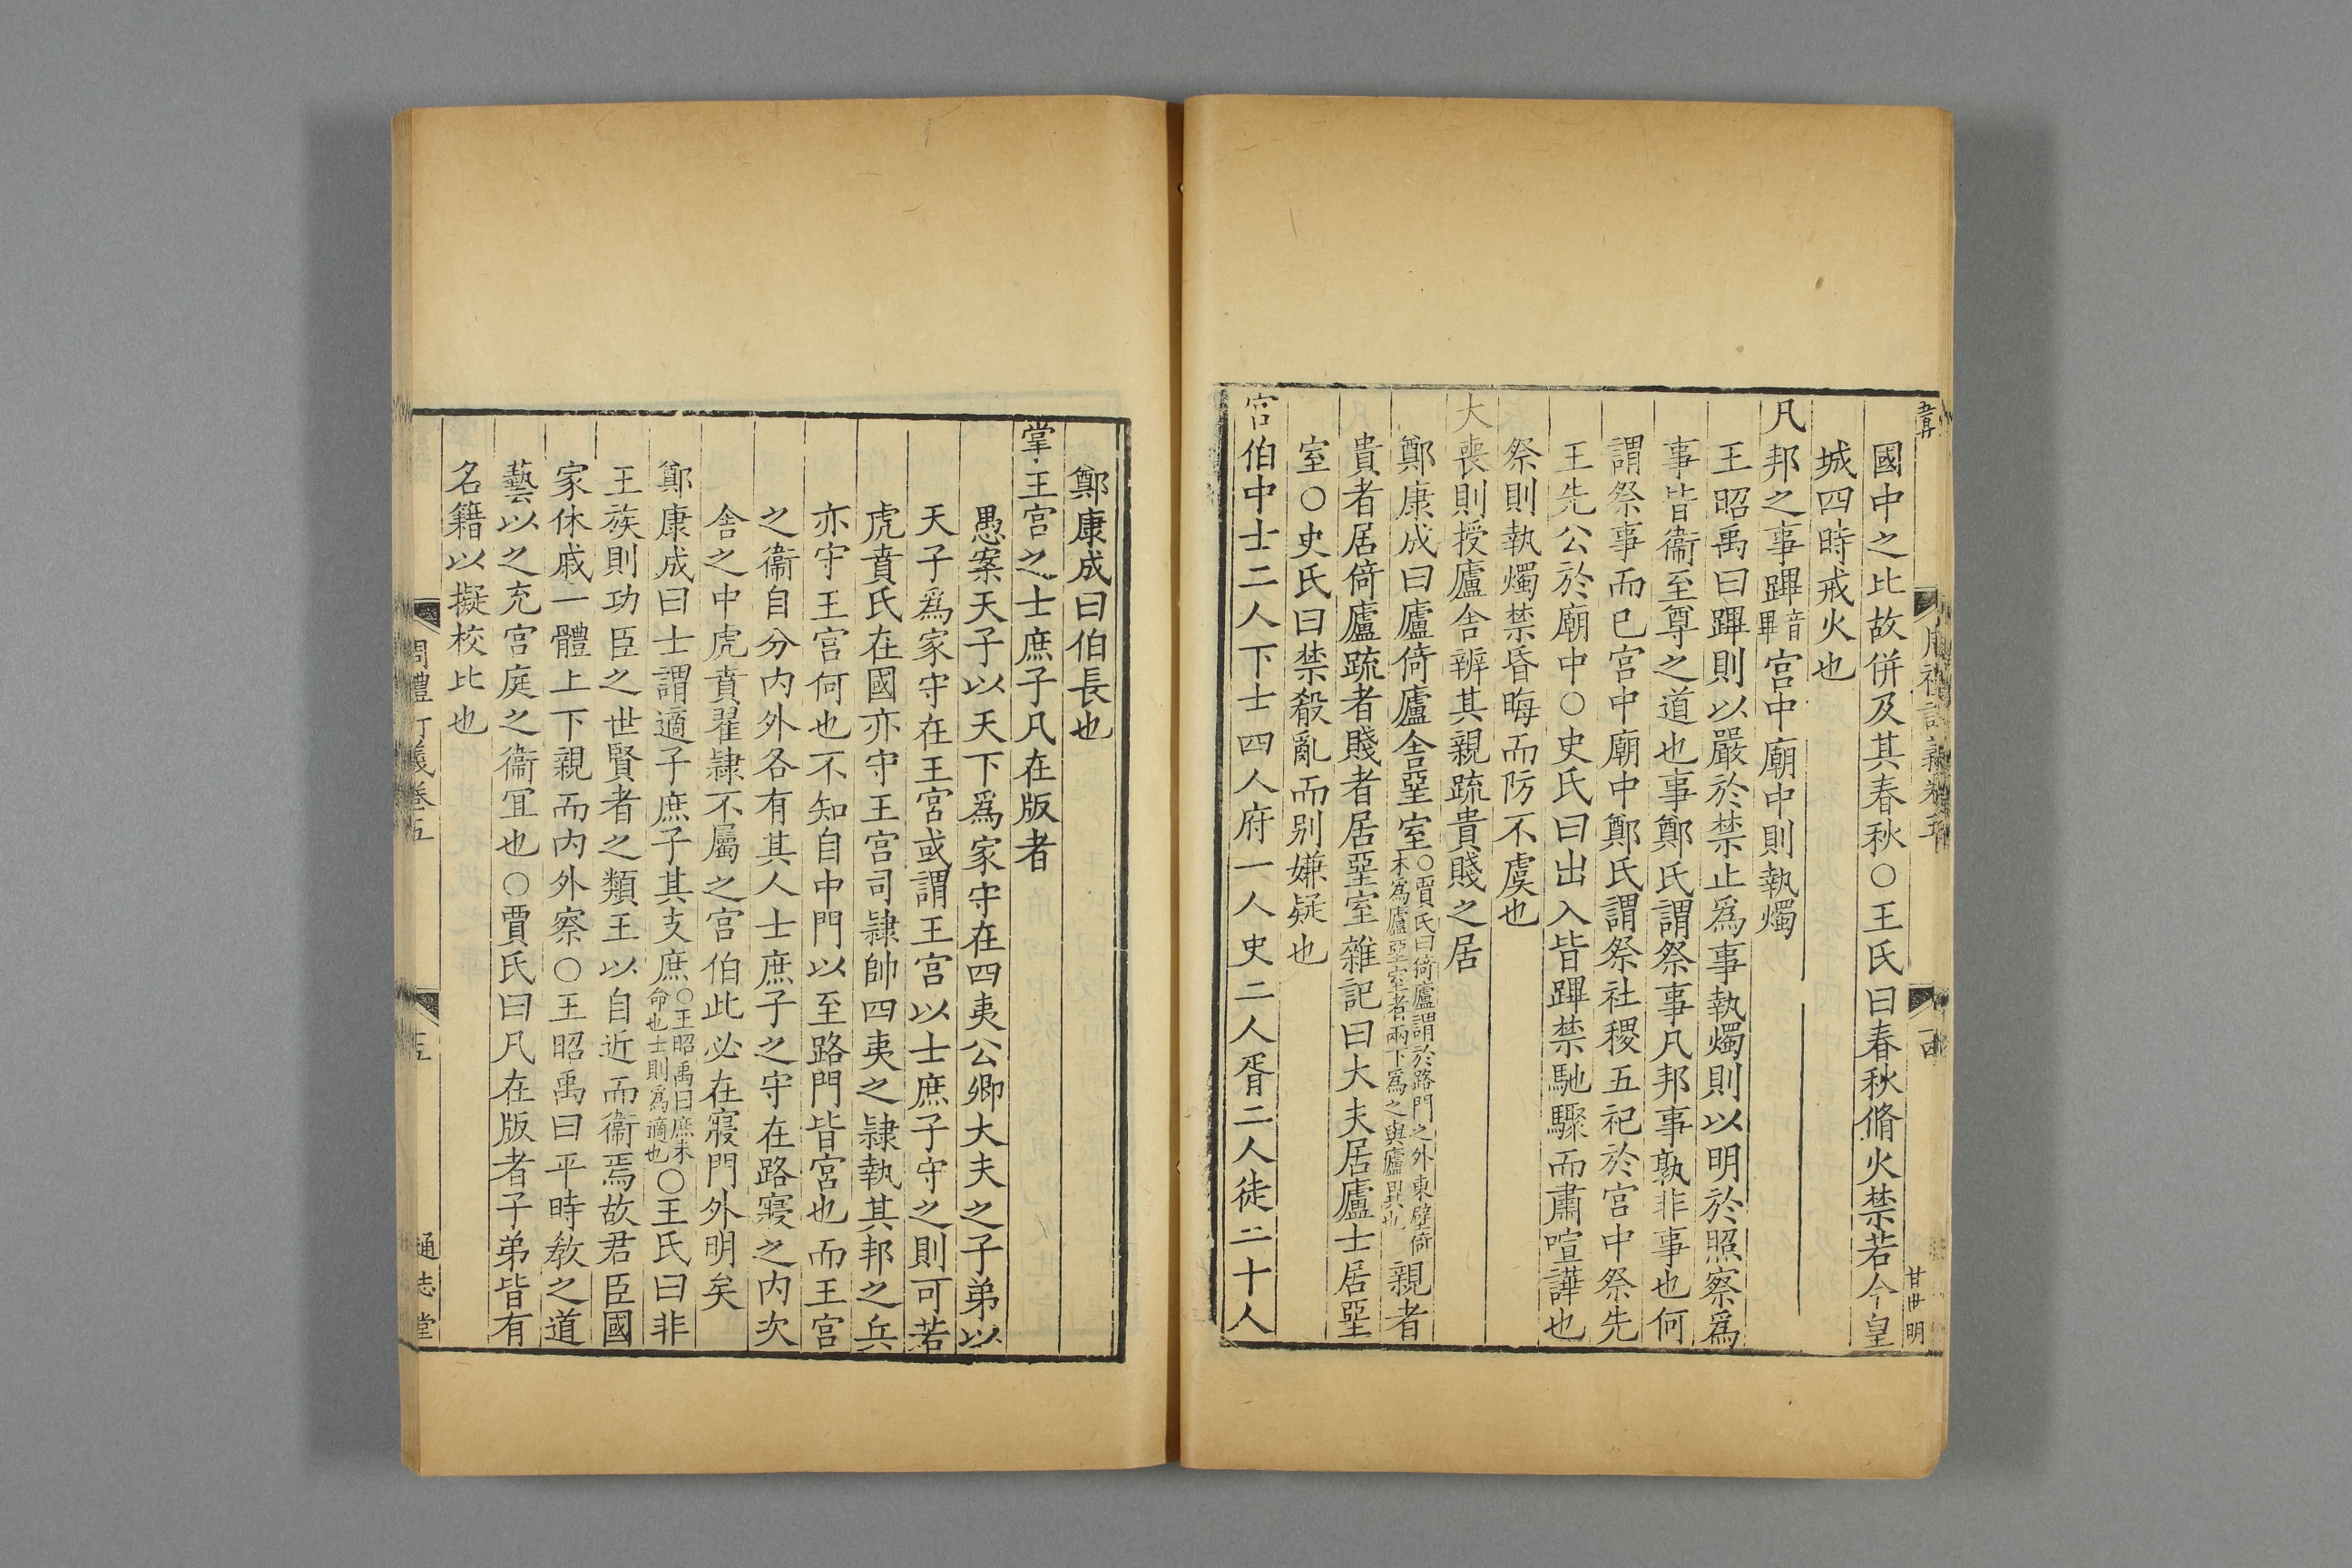 國中之比故併及其春秋○王氏曰春秋脩火禁若今皇
城四時戒火也
凡邦之事蹕音畢宮中廟中則執燭
王昭禹曰蹕則以嚴於禁止爲事執燭則以明於照察爲
事皆衞至尊之道也事鄭氏謂祭事凡邦事孰非事也何
謂祭事而已宮中廟中鄭氏謂祭社稷五祀於宮中祭先
王先公於廟中○史氏曰出入皆蹕禁馳驟而肅喧譁也
祭則執燭禁昏晦而防不虞也
大喪則授廬舍辨其親疏貴賤之居
鄭康成曰廬倚廬舍堊室○賈氏曰倚廬謂於路門之外東壁倚木爲廬堊室者兩下爲之與廬異也親者
貴者居倚廬疏者賤者居堊室雜記曰大夫居廬士居堊
室○史氏曰禁殺亂而别嫌疑也
宮伯中士二人下士四人府一人史二人胥二人徒二十人
鄭康成曰伯長也
掌王宮之士庶子凡在版者
愚案天子以天下爲家守在四夷公卿大夫之子弟以
天子爲家守在王宮或謂王宮以士庶子守之則可若
虎賁氏在國亦守王宮司隷帥四夷之隷執其邦之兵
亦守王宮何也不知自中門以至路門皆宮也而王宮
之衞自分内外各有其人士庶子之守在路寢之内次
舍之中虎賁翟隷不屬之宮伯此必在寢門外明矣
鄭康成曰士謂適子庶子其支庶○王昭禹曰庶未命也士則爲適也○王氏曰非
王族則功臣之世賢者之類王以自近而衞焉故君臣國
家休戚一體上下親而内外察○王昭禹曰平時敎之道
藝以之充宮庭之衞宜也○賈氏曰凡在版者子弟皆有
名籍以擬校比也
周禮訂義卷五
五
通志堂
甘世明